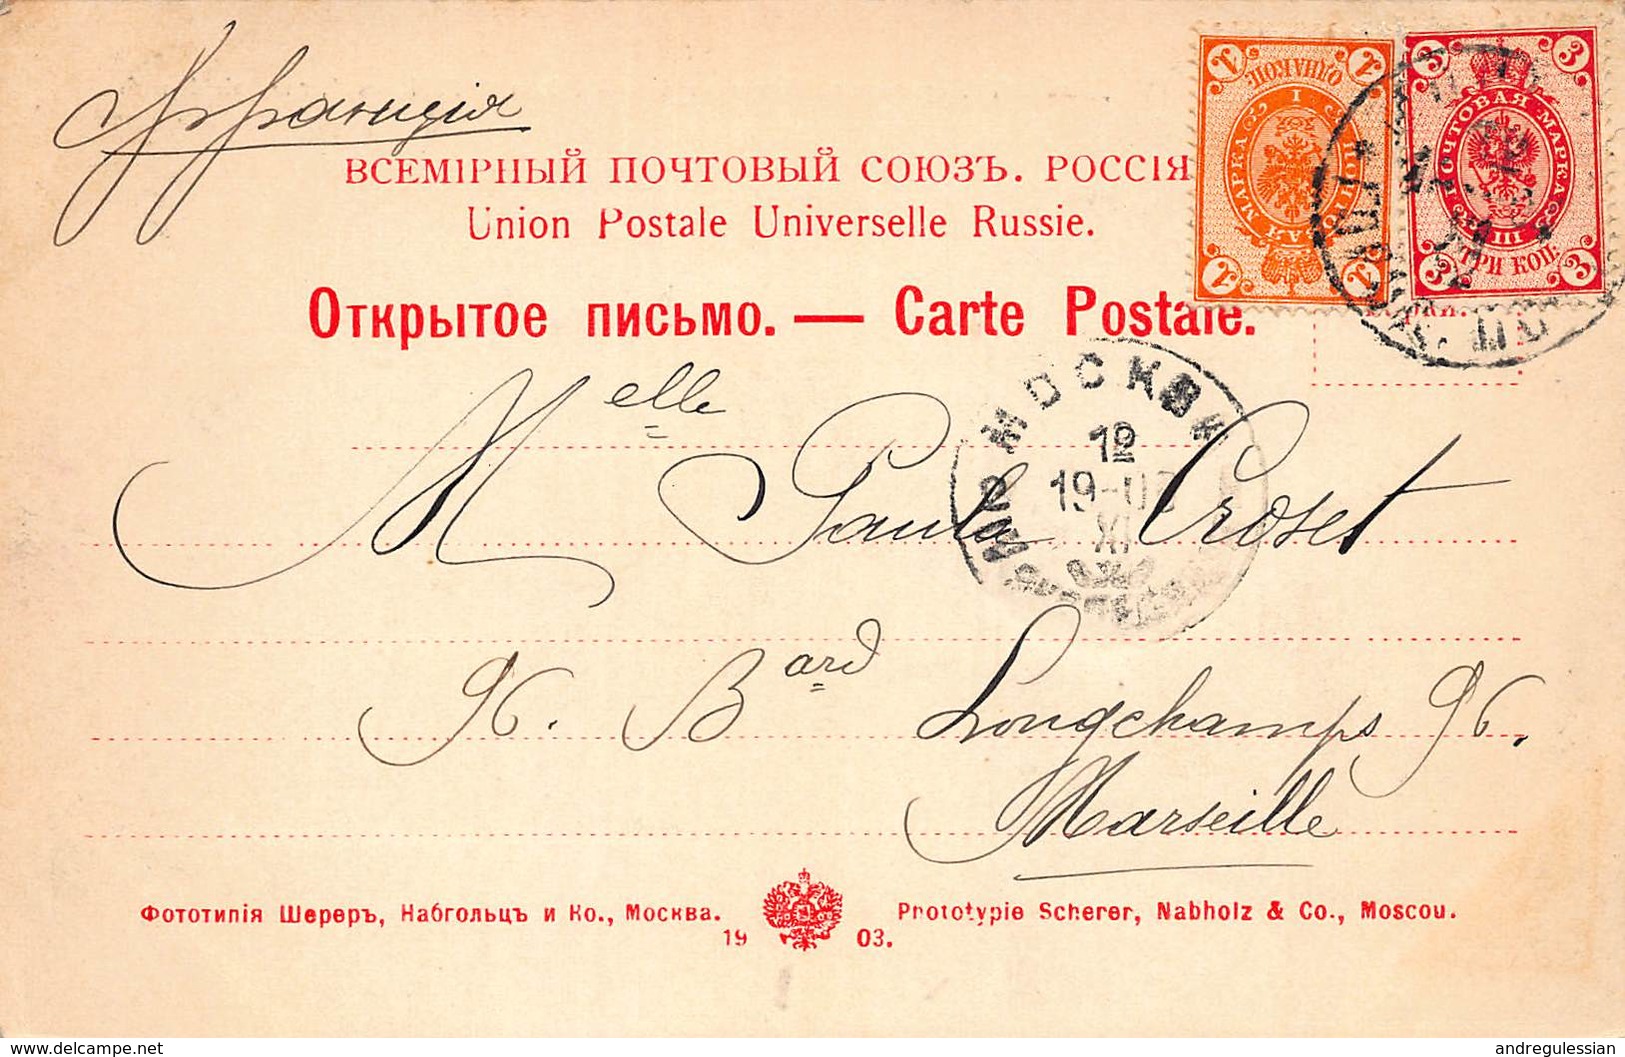 Франція
ВСЕМІРНЫЙ ПОЧТОВЫЙ СОЮЗЪ. РОССІЯ
Union Postale Universelle Russie.
Открытое письмо. — Carte Postale.
1 ОДНА КОП. 1
ПОЧТОВАЯ МАРКА
I
1 1
3 3
ПОЧТОВАЯ МАРКА
III
3 ТРИ КОП. 3
МОСКВА
12
19-
XI
Melle Paula Croset
96. Bard Longchamps 96.
Marseille
Фототипія Шереръ, Набгольцъ и Ко., Москва. Prototypie Scherer, Nabholz & Co., Moscou.
19 03.
www.delcampe.net andregulessian